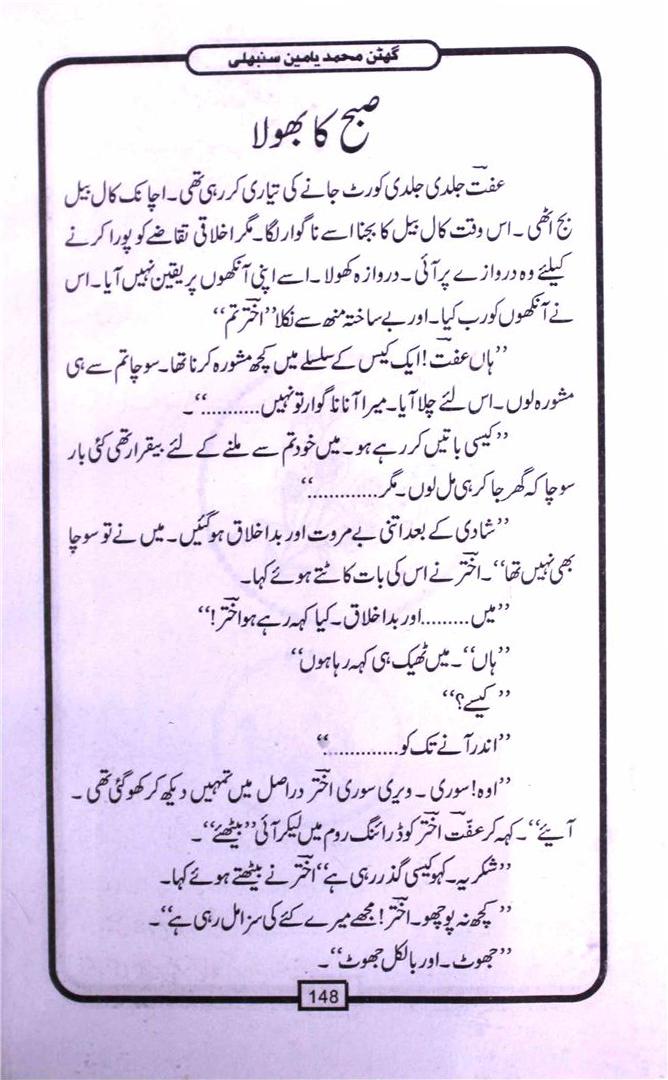 گھٹن محمد یامین سنبھلی
صبح کا بھولا
عفت جلدی جلدی کورٹ جانے کی تیاری کر رہی تھی۔ اچانک کال بیل
بج اٹھی۔ اس وقت کال بیل کا بجنا اسے ناگوار لگا۔ مگر اخلاقی تقاضے کو پورا کرنے
کیلئے وہ دروازے پر آئی۔ دروازہ کھولا۔ اسے اپنی آنکھوں پر یقین نہیں آیا۔ اس
نے آنکھوں کو رب کیا۔ اور بے ساختہ منھ سے نکلا ’’اختر تم‘‘
’’ہاں عفت! ایک کیس کے سلسلے میں کچھ مشورہ کرنا تھا۔ سوچا تم سے ہی
مشورہ لوں۔ اس لئے چلا آیا۔ میرا آنا ناگوار تو نہیں..........‘‘۔
’’کیسی باتیں کر رہے ہو۔ میں خود تم سے ملنے کے لئے بیقرار تھی کئی بار
سوچا کہ گھر جا کر ہی مل لوں۔ مگر.............‘‘
’’شادی کے بعد اتنی بے مروت اور بداخلاق ہو گئیں۔ میں نے تو سوچا
بھی نہیں تھا‘‘۔ اختر نے اس کی بات کاٹتے ہوئے کہا۔
’’میں.........اور بداخلاق۔ کیا کہہ رہے ہو اختر!‘‘
’’ہاں‘‘۔ میں ٹھیک ہی کہہ رہا ہوں‘‘
’’کیسے؟‘‘
’’اندر آنے تک کو.............‘‘
’’اوہ! سوری۔ ویری سوری اختر دراصل میں تمہیں دیکھ کر کھو گئی تھی۔
آیئے‘‘۔ کہہ کر عفت اختر کو ڈرائنگ روم میں لیکر آئی ’’بیٹھئے‘‘۔
’’شکریہ۔ کہو کیسی گذر رہی ہے‘‘ اختر نے بیٹھتے ہوئے کہا۔
’’کچھ نہ پوچھو۔ اختر! مجھے میرے کئے کی سزا مل رہی ہے‘‘۔
’’جھوٹ۔ اور بالکل جھوٹ‘‘۔
148